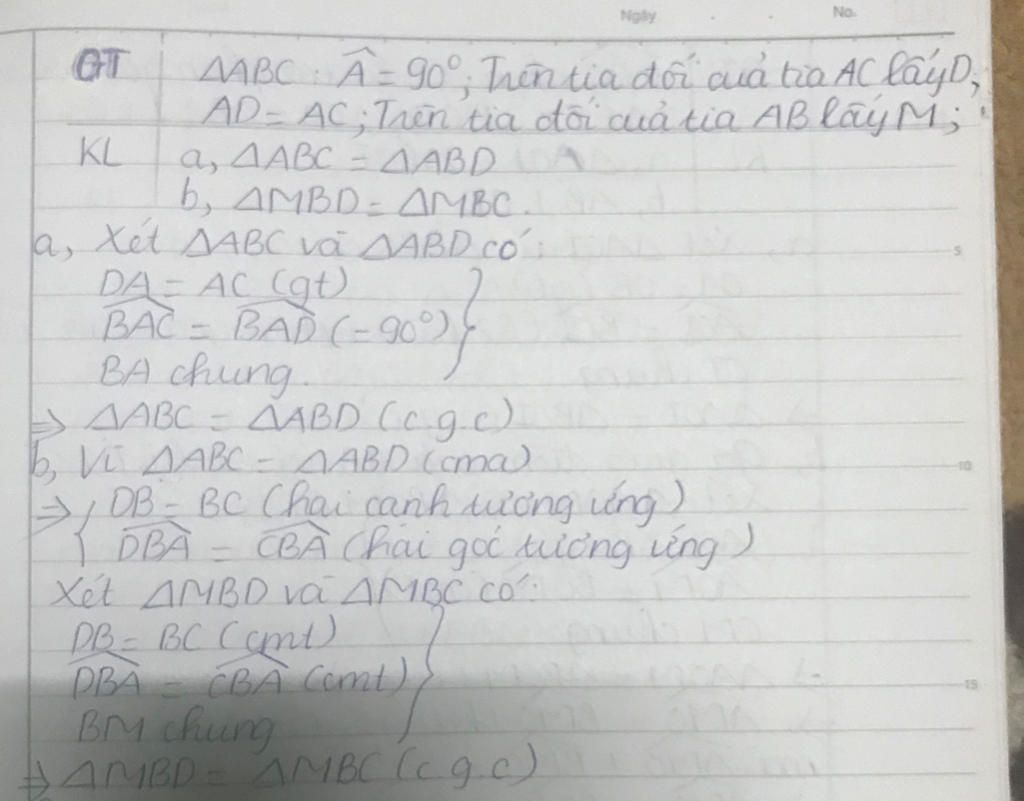 Ngày No.
GT ΔABC: Â = 90°; Trên tia đối của tia AC lấy D;
AD = AC; Trên tia đối của tia AB lấy M;
KL a, ΔABC = ΔABD
b, ΔMBD = ΔMBC.
a, Xét ΔABC và ΔABD có: 5
DA = AC (gt)
\widehat{BAC} = \widehat{BAD} (= 90°)
BA chung.
⇒ ΔABC = ΔABD (c g.c)
b, Vì ΔABC = ΔABD (cma) 10
⇒ { DB = BC (hai cạnh tương ứng)
\widehat{DBA} = \widehat{CBA} (hai góc tương ứng)
Xét ΔMBD và ΔMBC có:
DB = BC (cmt)
\widehat{DBA} = \widehat{CBA} (cmt) 15
BM chung
⇒ ΔMBD = ΔMBC (c g.c)